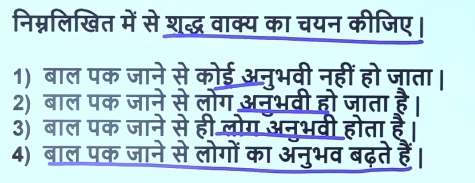 निम्नलिखित में से शुद्ध वाक्य का चयन कीजिए |
1) बाल पक जाने से कोई अनुभवी नहीं हो जाता |
2) बाल पक जाने से लोग अनुभवी हो जाता है |
3) बाल पक जाने से ही लोग अनुभवी होता है |
4) बाल पक जाने से लोगों का अनुभव बढ़ते हैं |